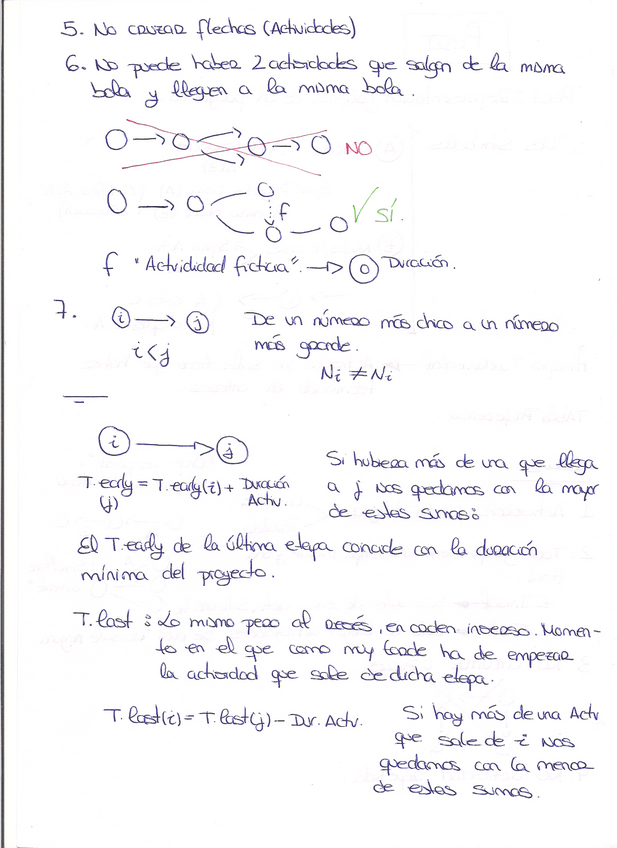 5. No cruzar flechas (Actividades)
6. No puede haber 2 actividades que salgan de la misma
bola y lleguen a la misma bola.
NO
f
SÍ.
f "Actividad ficticia". → 0 Duración.
7. i → j De un número más chico a un número
i < j más grande.
Ni ≠ Ni
i → j
Si hubiera más de una que llega
T.early = T.early(i) + Duración a j nos quedamos con la mayor
(j) Activ. de estas sumas:
El T.early de la última etapa coincide con la duración
mínima del proyecto.
T.last : Lo mismo pero al revés, en orden inverso. Momen-
to en el que como muy tarde ha de empezar
la actividad que sale de dicha etapa.
T.last(i) = T.last(j) - Dur. Activ. Si hay más de una Activ
que sale de i nos
quedamos con la menor
de estas sumas.